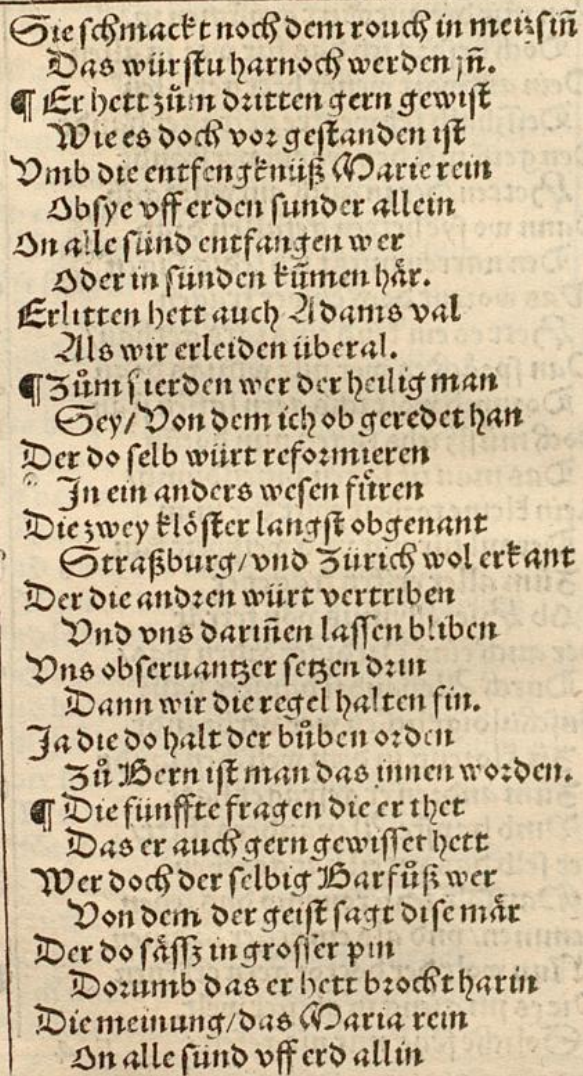 Sie schmackt noch dem rouch in meiꝫ sin̄
Das würstu harnoch werden jn̄.
¶ Er hett zům dritten gern gewist
Wie es doch vor gestanden ist
Vmb die entfengknüß Marie rein
Ob sye vff erden sunder allein
On alle sünd entfangen wer
Oder in sünden kūmen här.
Erlitten hett auch Adams val
Als wir erleiden überal.
¶ Zům fierden wer der heilig man
Sey/ Von dem ich ob geredet han
Der do selb würt reformieren
In ein anders wesen füren
Die zwey klöster langst obgenant
Straßburg/ vnd Zürich wol erkant
Der die andren würt vertriben
Vnd vns darin̄en lassen bliben
Vns obseruantzer setzen drin
Dann wir die regel halten fin.
Ja die do halt der bůben orden
Zů Bern ist man das innen worden.
¶ Die fünffte fragen die er thet
Das er auch gern gewisset hett
Wer doch der selbig Barfůß wer
Von dem der geist sagt dise mär
Der do säſſz in grosser pin
Dorumb das er hett brocht harin
Die meinung/ das Maria rein
On alle sünd vff erd allin